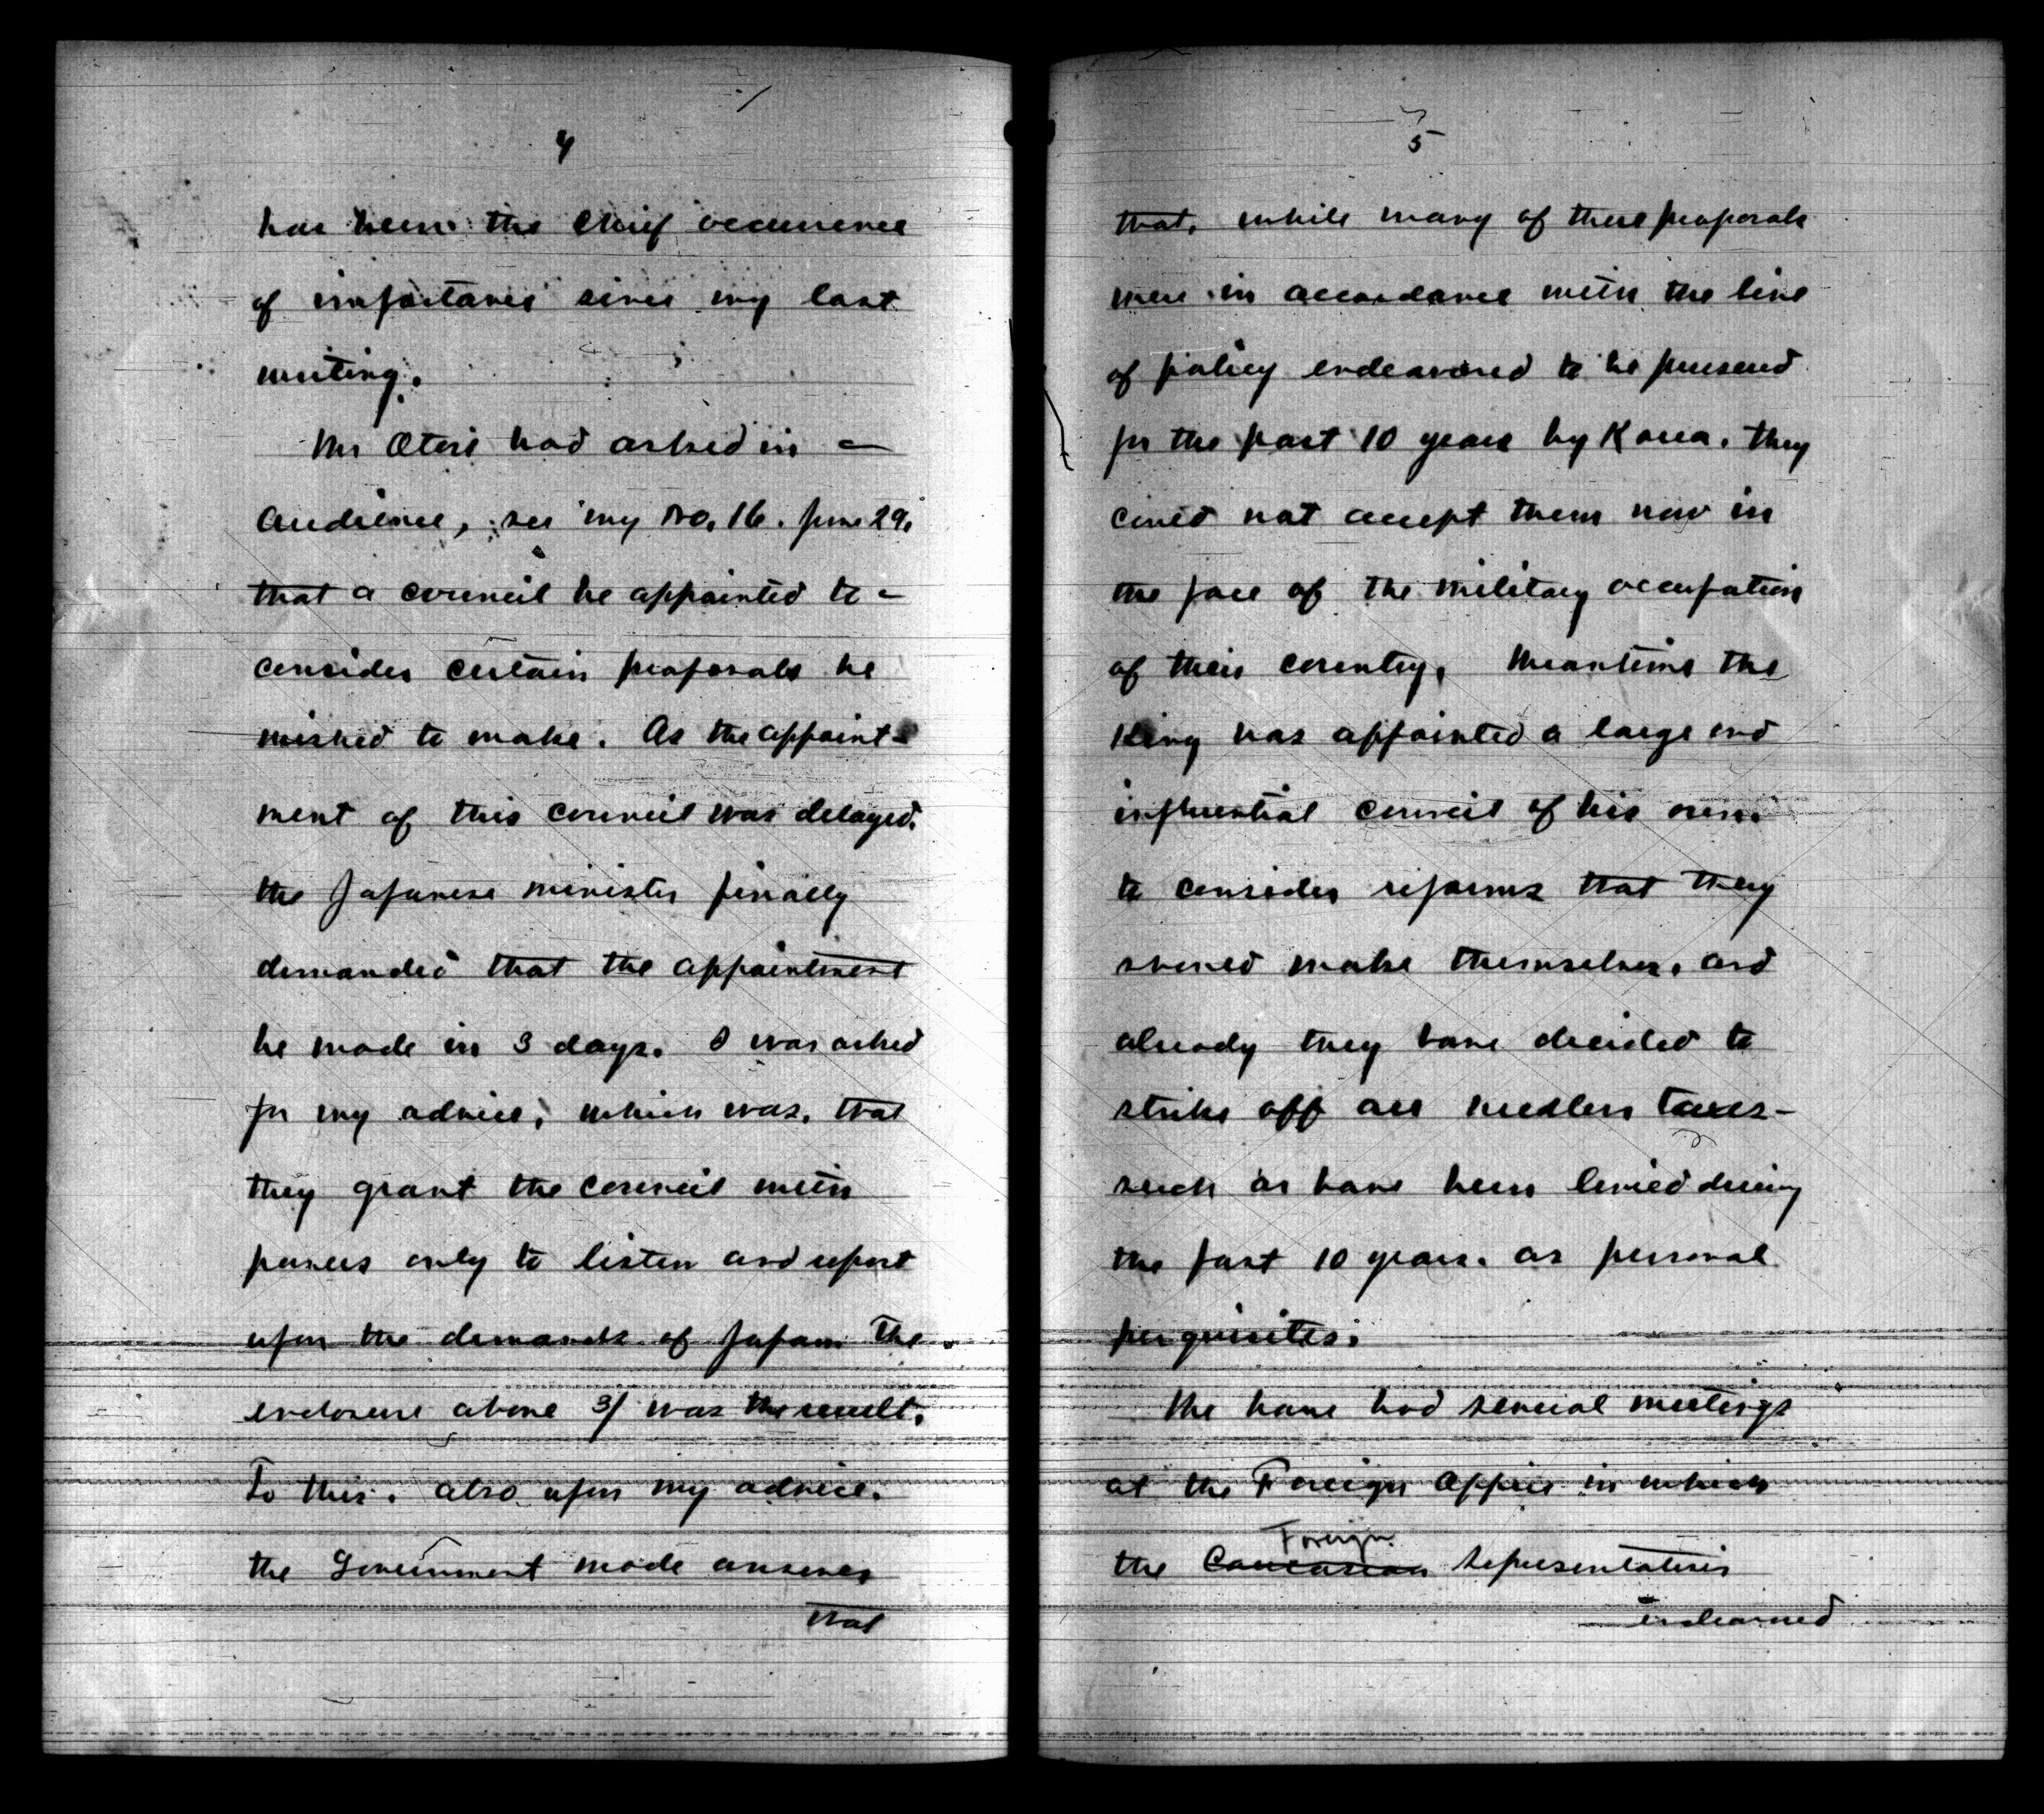 4
has been the chief occurrence
of importance since my last
writing.
Mr Otori had asked in
Audience, see my No. 16. June 29,
that a council be appointed to
consider certain proposals he
wished to make. As the appoint-
ment of this council was delayed,
the Japanese minister finally
demanded that the appointment
be made in 3 days. I was asked
for my advice, which was, that
they grant the council with
powers only to listen and report
upon the demands of Japan. The
enclosure above 3/ was the result.
To this, also upon my advice,
the Government made answer
that
5
that, while many of these proposals
were in accordance with the line
of policy endeavored to be pursued
for the past 10 years by Korea, they
could not accept them now in
the face of the military occupation
of their country. Meantime the
King has appointed a large and
influential council of his own
to consider reforms that they
should make themselves, and
already they have decided to
strike off all needless taxes-
such as have been levied during
the past 10 years, as personal
perquisites.
We have had several meetings
at the Foreign Office in which
Foreign
the Caucasian representatives
endeavored